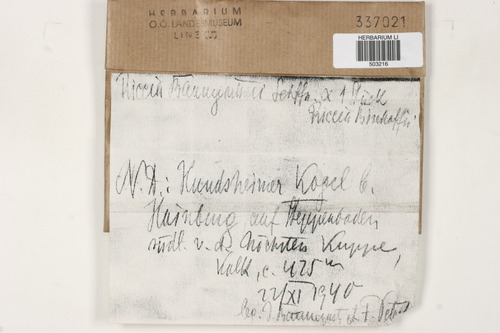 HERBARIUM
O.Ö. LANDESMUSEUM
LINZ
337021
HERBARIUM LI
503216
Riccia Baumgartneri Schffn. x 1 Stück
Riccia Bischoffii
N.D.: Hundsheimer Kogel b.
Hainburg auf Steppenboden
südl. v. d. höchsten Kuppe,
Kalk, c. 425 m
22/XI 1940
J. Baumgartn.